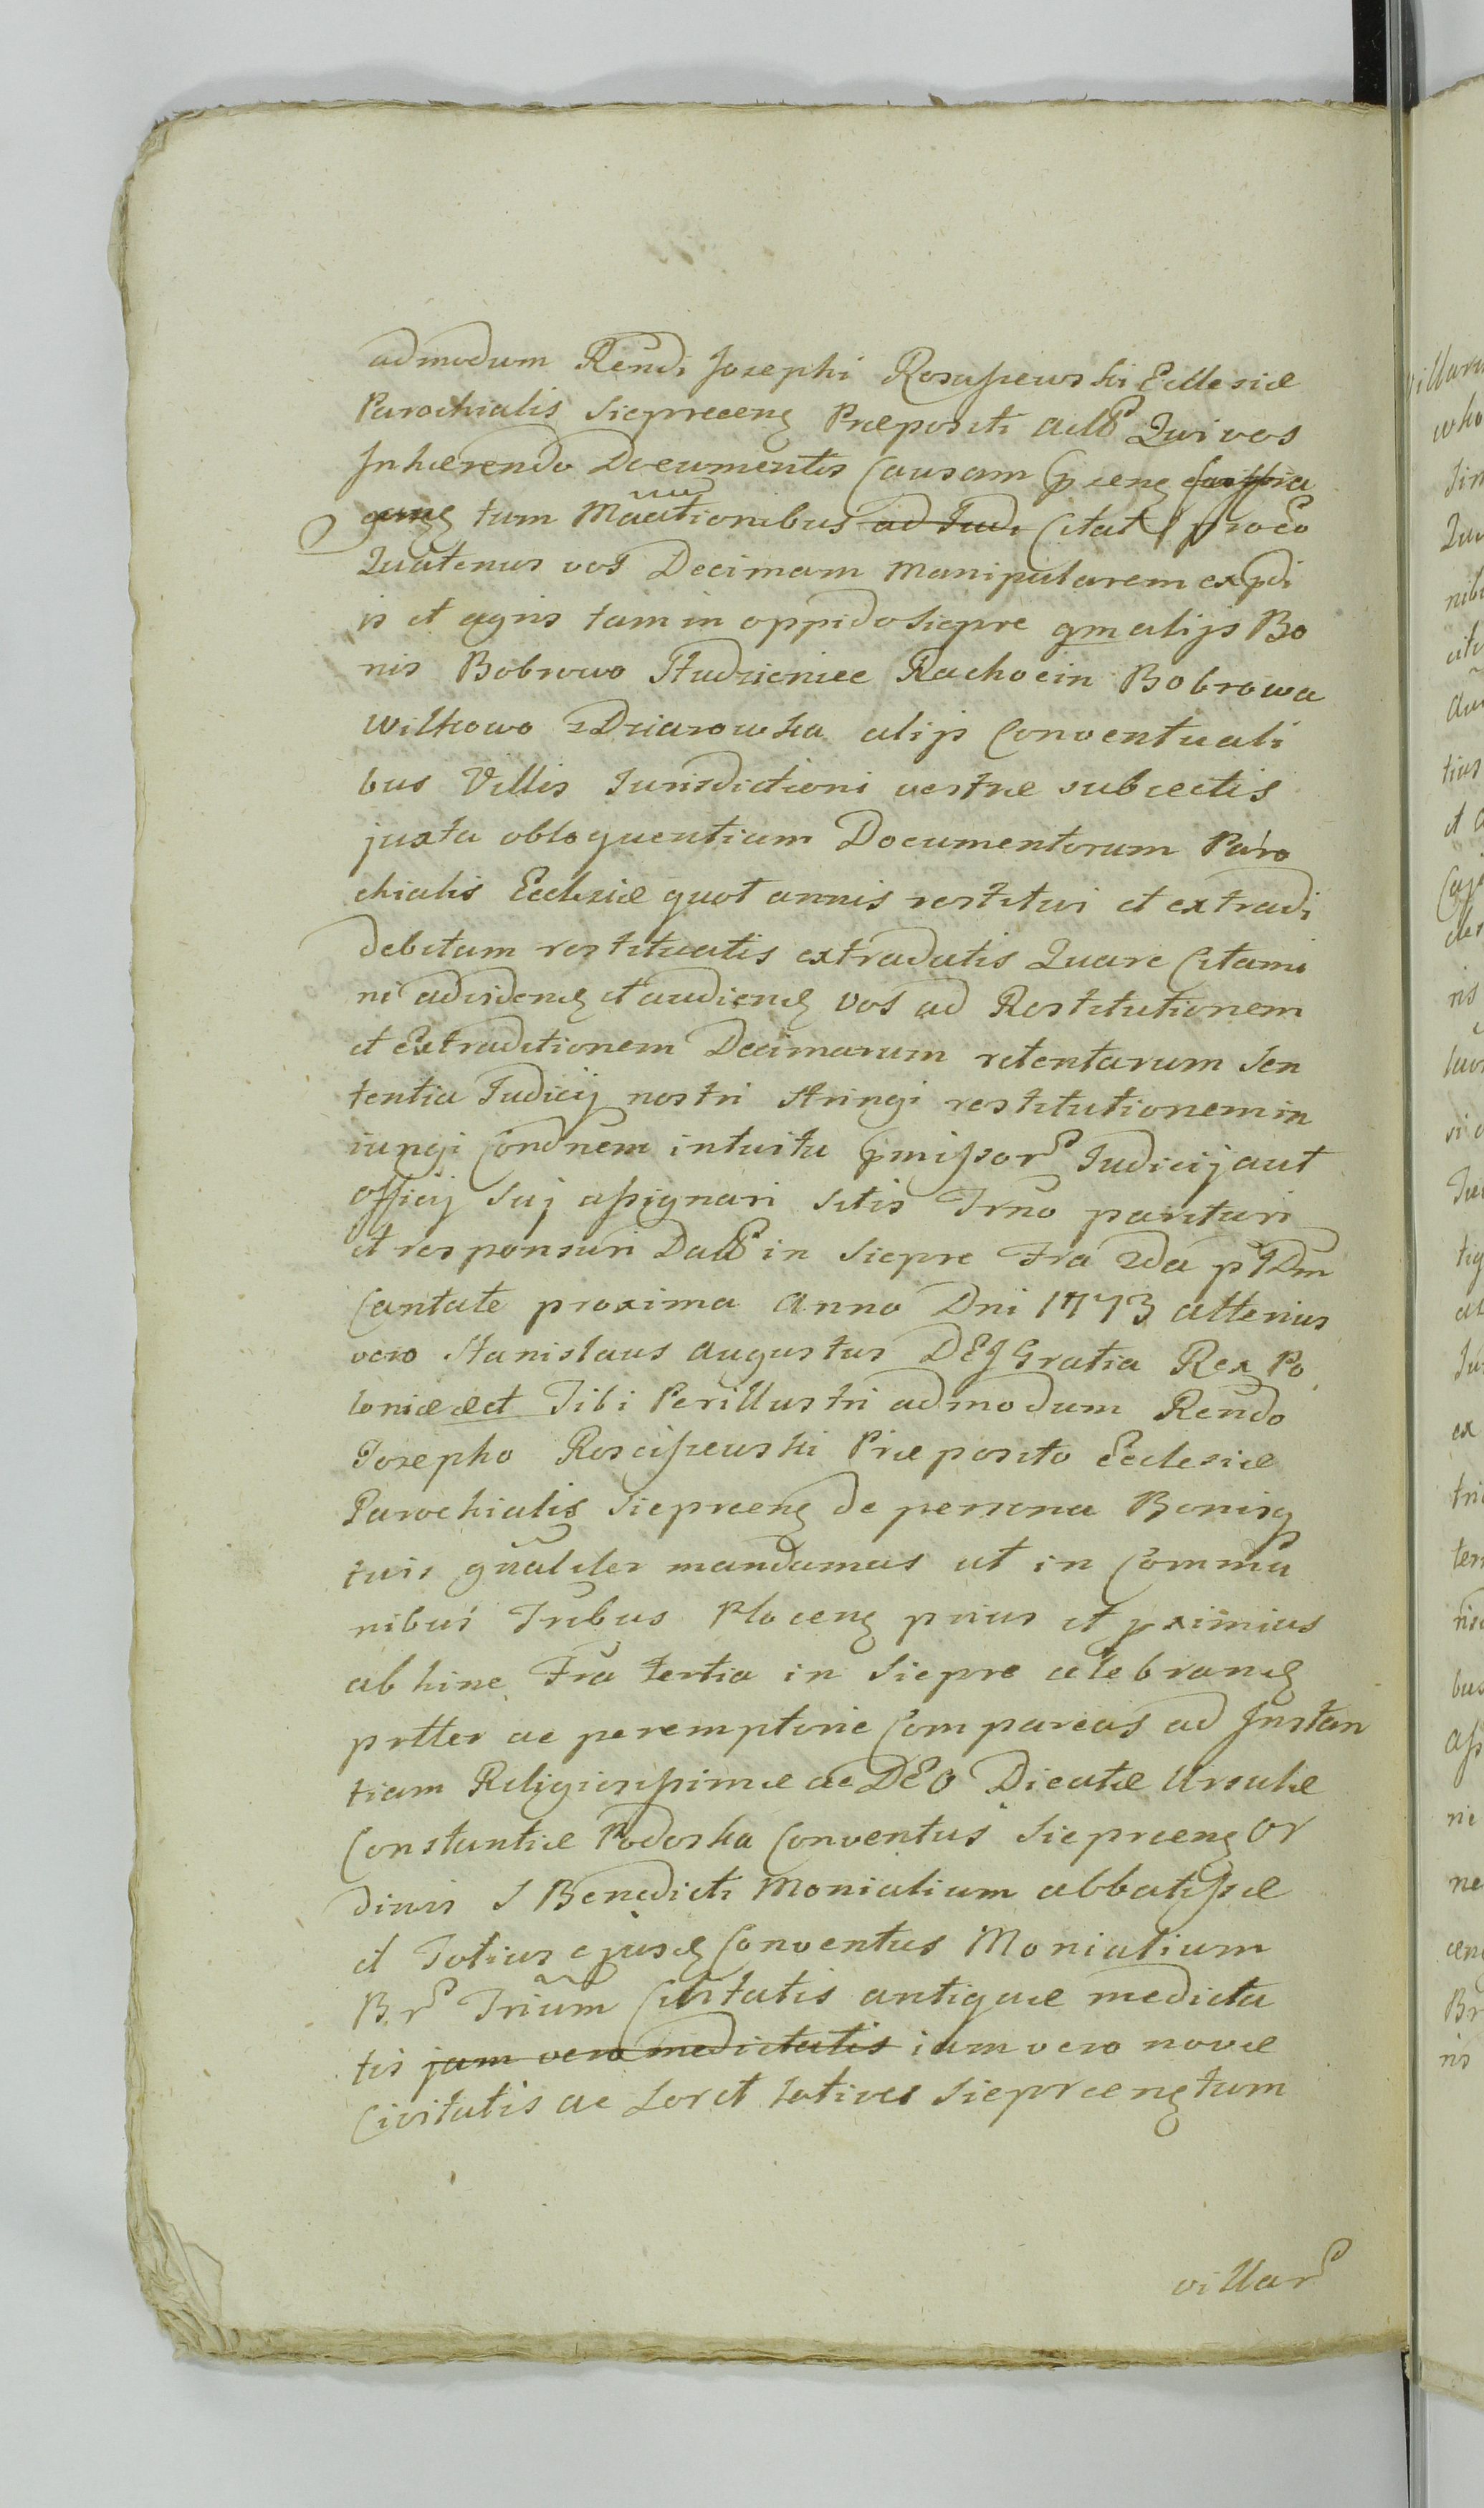 admodum Rendi Josephi Rosciszewski Ecclesiæ
Parochialis Siepreceng Præpositi Act Qui vos
Inhærendo Documentis Causam
tum Maationibus ad Judi Citat proco
Quatenus vos Decimam Manipularem expdi
is et agris tam in oppido Siepre qm alijs Bo
nis Bobrowo Studzieniec Rachocin Bobrowa
Wilkowo zDziarowka alijs Conventuali
bus Villis Jurisdictioni vestræ subiectis
juxta obloquentiam Documentorum Paro
chialis Ecclesiæ quot annis restitui et extradi
debitam restituatis extradatis Quare Citami
ni ad videnđ et audienđ vos ad Restitutionem
et Extraditionem Decimarum retentarum Sen
tentia Judicij nostri stringi restitutionem in
iungi Condnem intuitu pmissor Judicij aut
Officij Suj assignari Sitis Trno parituri
et responsuri Datt in Siepre Fra 2da p Dm
Cantate proxima Anno Dni 1773 alterius
vero Stanislaus Augustus DEJ Gratia Rex Po
loniæ æct Tibi Perillustri admodum Rendo
Josepho Rosciszewski Præposito Ecclesiæ
Parochialis Siepreceng de persona Bonisq
tuis gnaliter mandamus ut in Commu
nibus Tribus Ploceng prius et pximius
abhinc Fra tertia in Siepre celebranđ
prtter ac peremptorie Compareas ad Instan
tiam Religiosissimæ ac DEO Dicatæ Ursulæ
Constantiæ Podoska Conventus Siepreceng Or
dinis S Benedicti Monialium abbatissæ
et Totius ejusđ Conventus Monialium
Br Trium Civitatis antiquæ medieta
tis jam vero medietatis iam vero novæ
Civitatis ac Sortt totives Siepreceng tum
villar